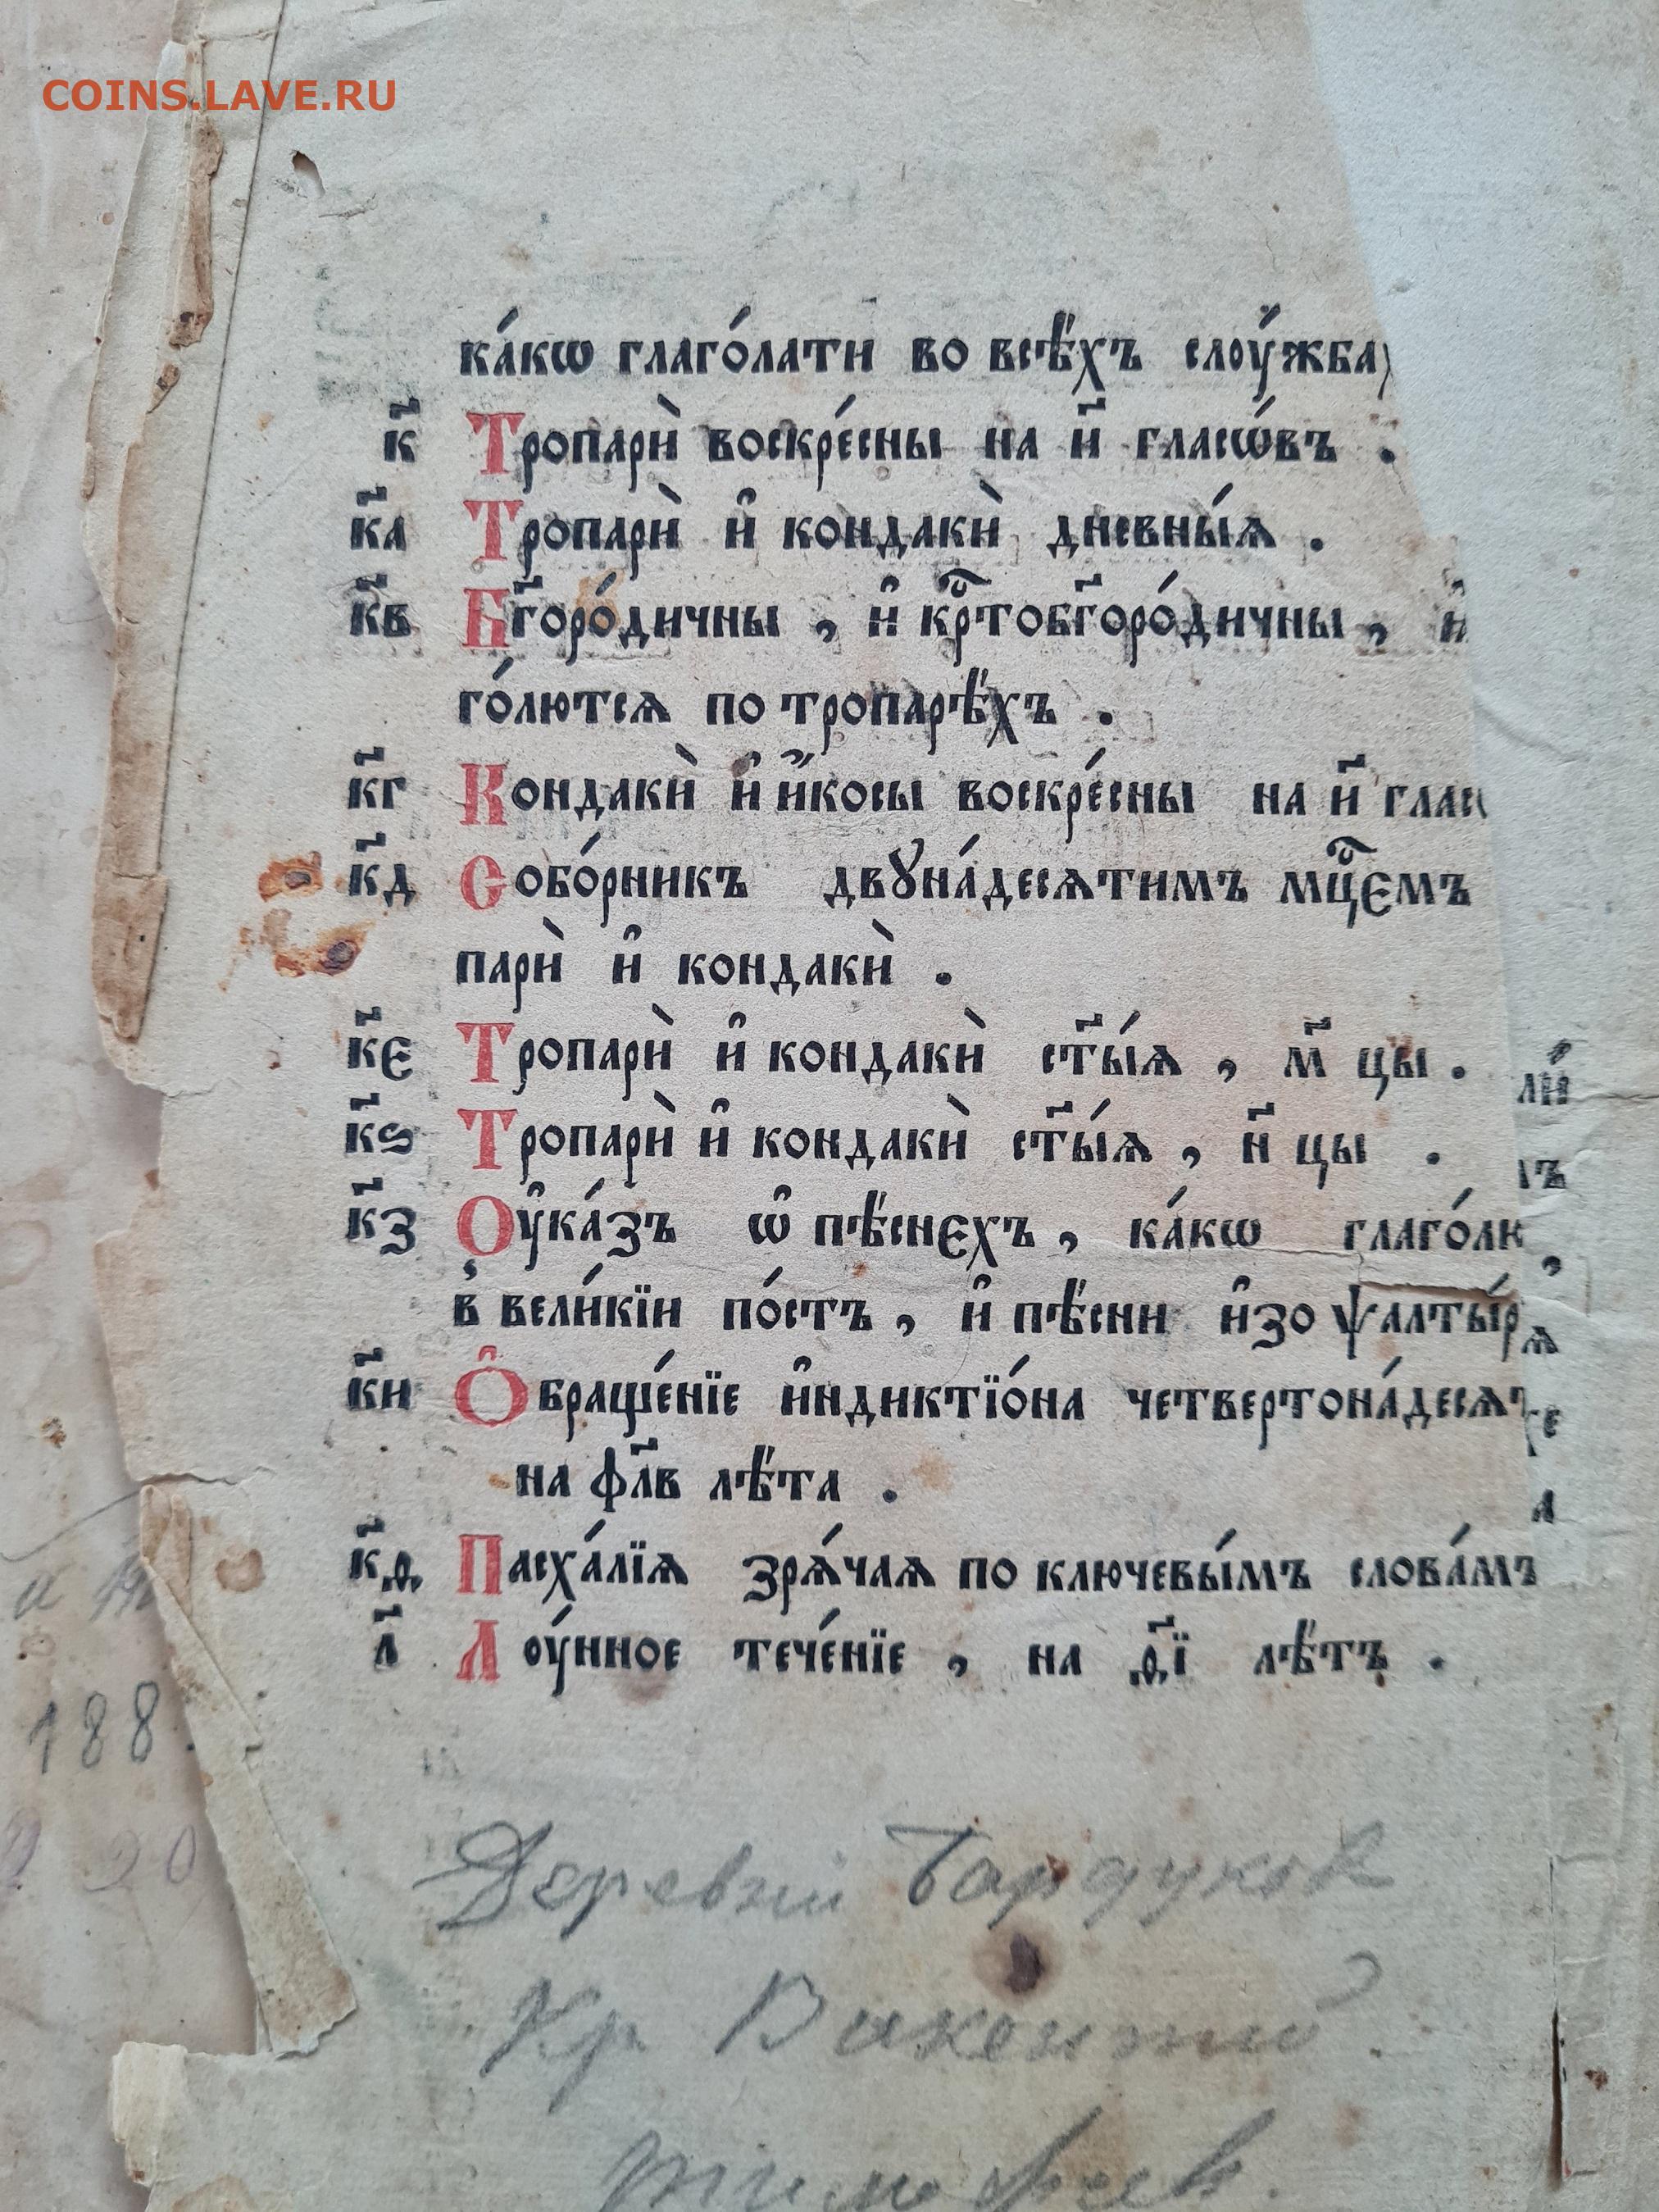 COINS.LAVE.RU
ка́кѡ глаго́лати во всѣ́хъ слꙋ́жба
к҃ Тропарѝ воскре́сны на и҃ гласѡ́въ .
к҃а Тропарѝ и҆ кондакѝ дневны́ѧ .
к҃в Бг҃оро́дичны , и҆ крⷭ҇тобг҃оро́дичны , и҆
го́лютсѧ по тропарѣ́хъ .
к҃г Кондакѝ и҆ и҆́косы воскре́сны на и҃ глас
к҃д Собо́рникъ двꙋна́десѧтимъ мцⷭ҇емъ
парѝ и҆ кондакѝ .
к҃є Тропарѝ и҆ кондакѝ ст҃ы́ѧ , м҃ цы .
к҃ѕ Тропарѝ и҆ кондакѝ ст҃ы́ѧ , н҃ цы .
к҃з Оу҆ка́зъ ѡ҆ пѣ́снехъ , ка́кѡ глаго́лю ,
в̾ вели́кїи по́стъ , и҆ пѣ́сни и҆зо ѱалты́рѧ
к҃и Ѻ҆браще́нїе и҆ндиктїо́на четвертона́десѧт
на фл҃в лѣ́та .
к҃ѳ Пасха́лїѧ зрѧ́чаѧ по ключевы́мъ слова́мъ
л҃ Лоу́нное тече́нїе , на ѳ҃ї лѣ́тъ .
188
20
Деревни Бардуков
Кр Викентий
Тимофеев.